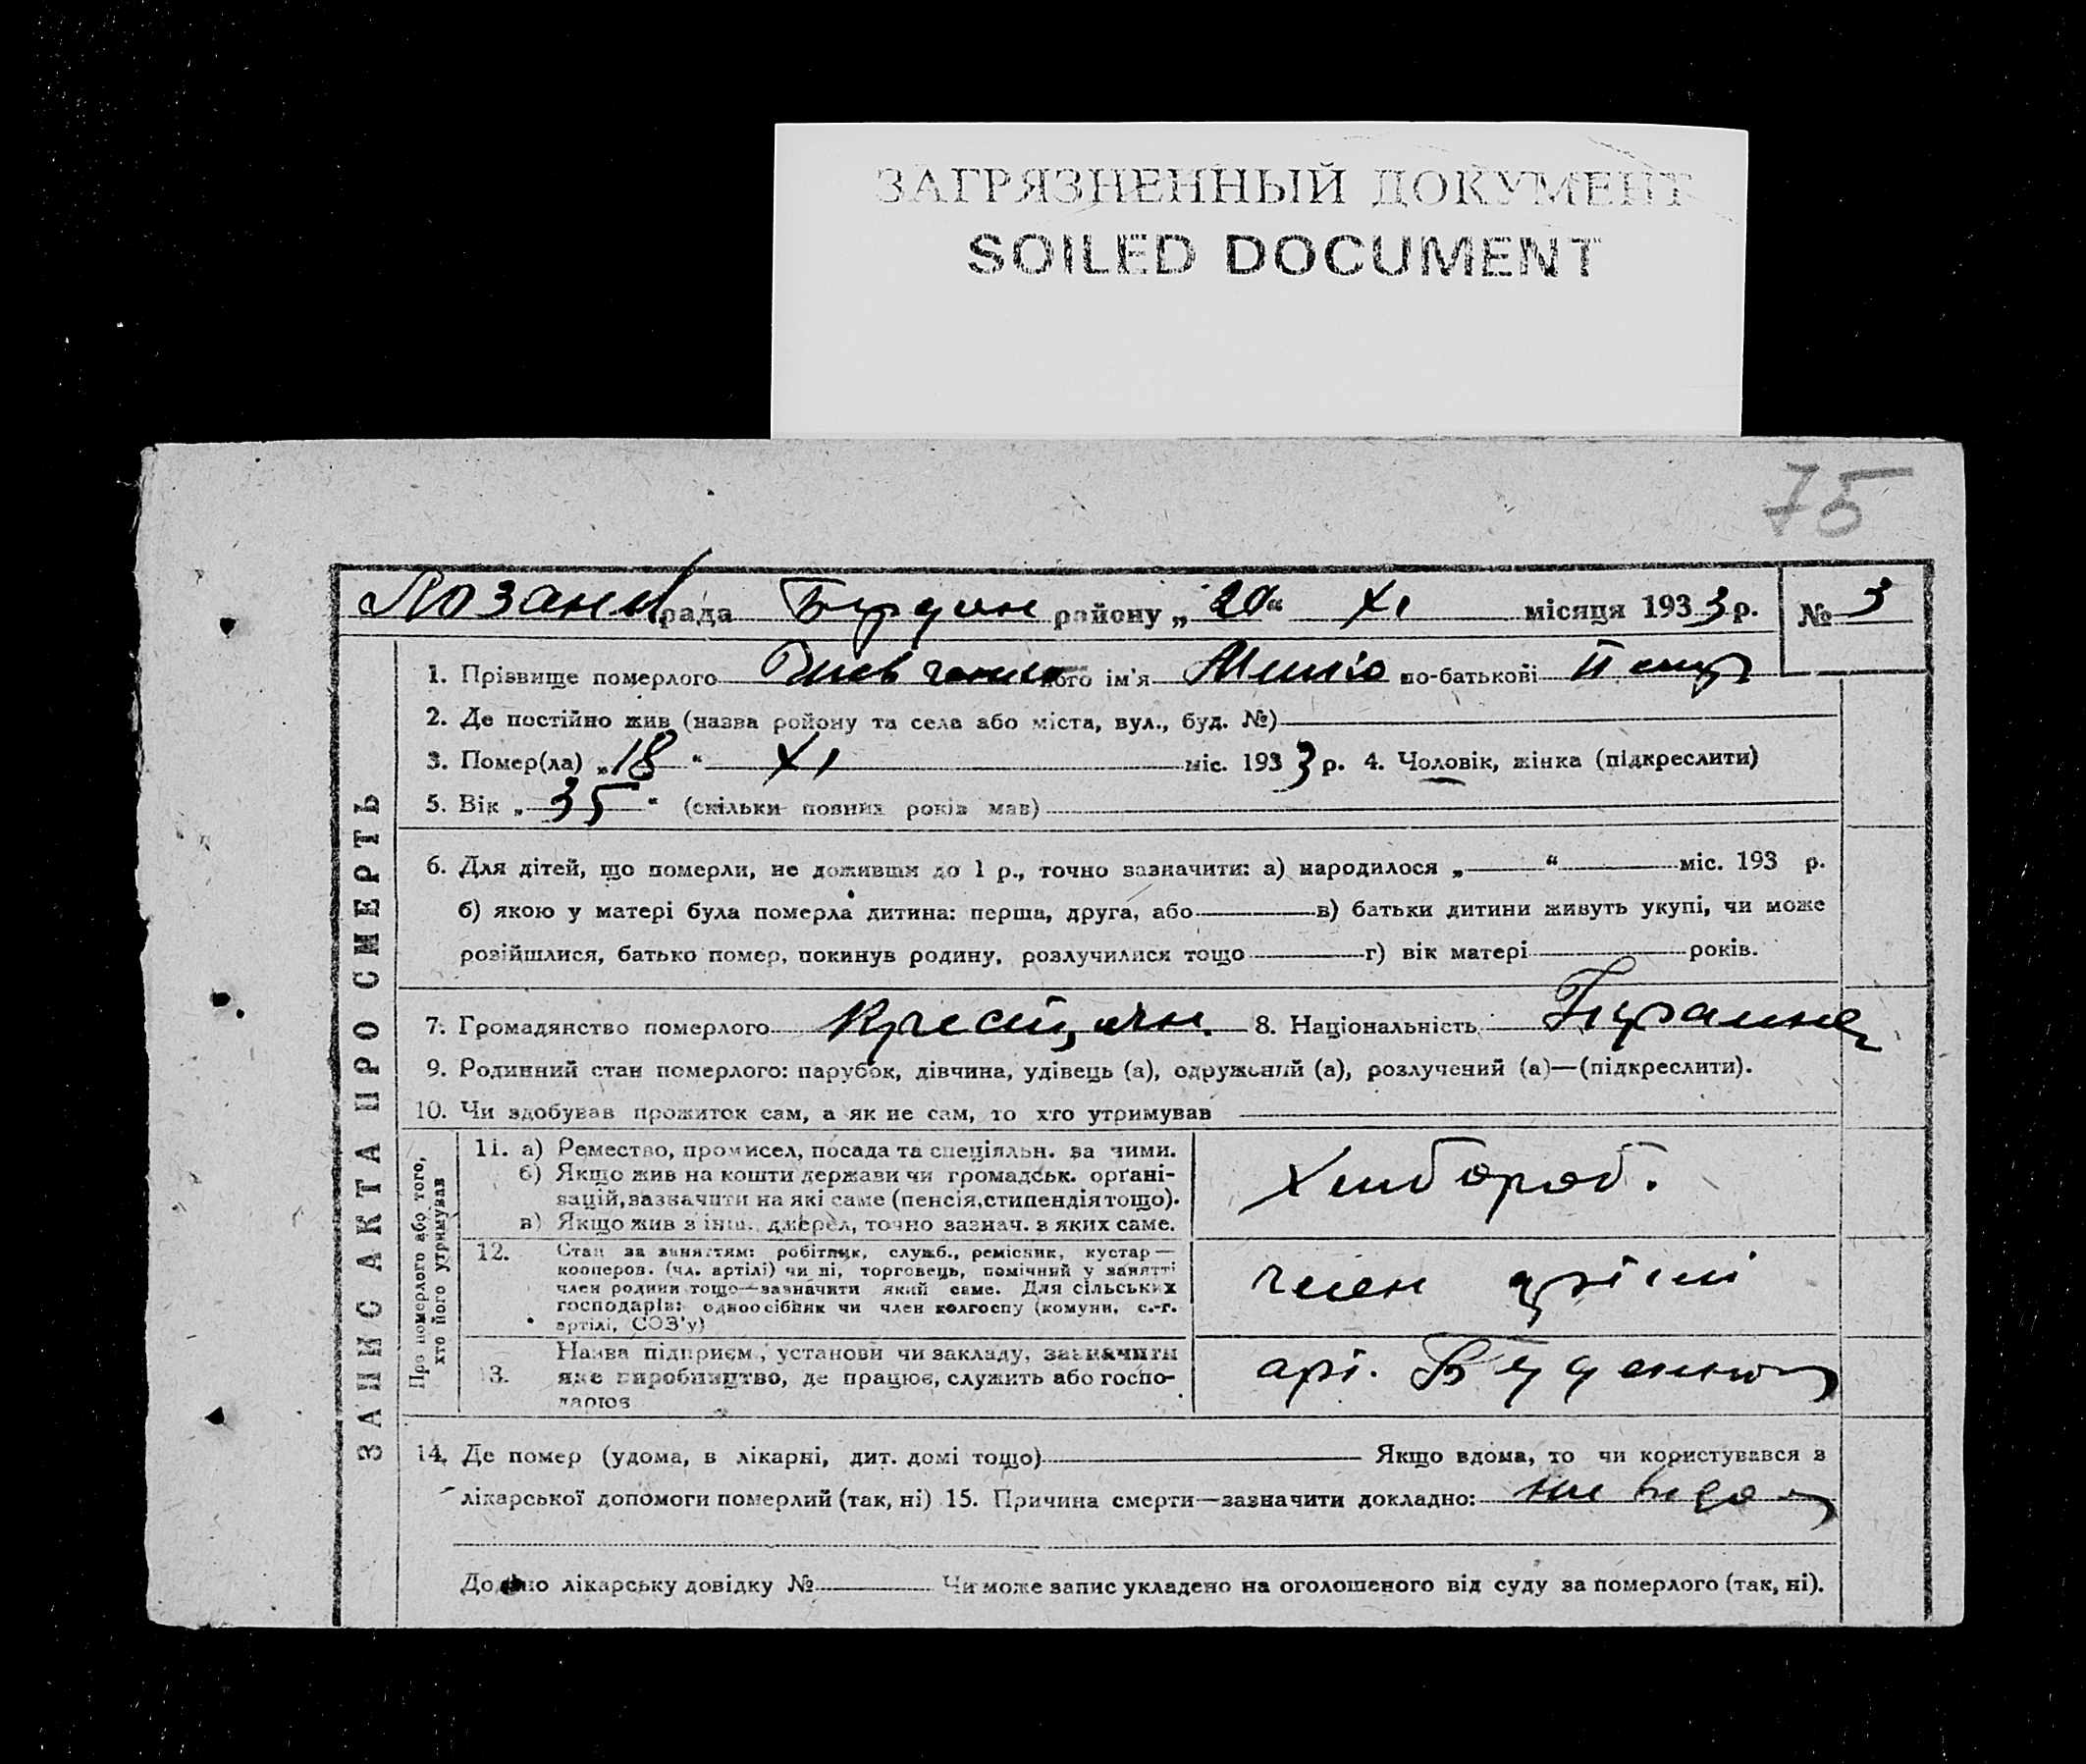 ЗАГРЯЗНЕННЫЙ ДОКУМЕНТ
SOILED DOCUMENT
75
рада району „20“ XI місяця 1933 р. № 3
1. Прізвище померлого його ім'я по-батькові
2. Де постійно жив (назва ройону та села або міста, вул., буд. №)
3. Помер(ла) „18“ XI міс. 1933 р. 4. Чоловік, жінка (підкреслити)
5. Вік „35“ (скільки повних років мав)
6. Для дітей, що померли, не доживши до 1 р., точно зазначити: а) народилося „ “ міс. 193 р.
б) якою у матері була померла дитина: перша, друга, або в) батьки дитини живуть укупі, чи може
розійшлися, батько помер, покинув родину, розлучилися тощо г) вік матері років.
7. Громадянство померлого 8. Національність
9. Родинний стан померлого: парубок, дівчина, удівець (а), одружений (а), розлучений (а)—(підкреслити).
10. Чи здобував прожиток сам, а як не сам, то хто утримував
11. а) Ремество, промисел, посада та спеціяльн. за чими.
б) Якщо жив на кошти держави чи громадськ. органі-
зацій, зазначити на які саме (пенсія, стипендія тощо).
в) Якщо жив з інш. джерел, точно зазнач. з яких саме.
Хлібороб.
12. Стан за заняттям: робітник, служб., ремісник, кустар—
кооперов. (чл. артілі) чи ні, торговець, помічний у занятті
член родини тощо—зазначити який саме. Для сільських
господарів: одноосібник чи член колгоспу (комуни, с.-г.
артілі, СОЗ'у)
член артілі
13. Назва підприєм., установи чи закладу, зазначити
яке виробництво, де працює, служить або госпо-
дарює
арт.
14. Де помер (удома, в лікарні, дит. домі тощо) Якщо вдома, то чи користувався з
лікарської допомоги померлий (так, ні) 15. Причина смерти—зазначити докладно:
Додано лікарську довідку № Чи може запис укладено на оголошеного від суду за померлого (так, ні).
ЗАПИС АКТА ПРО СМЕРТЬ
Про померлого або того,
хто його утримував